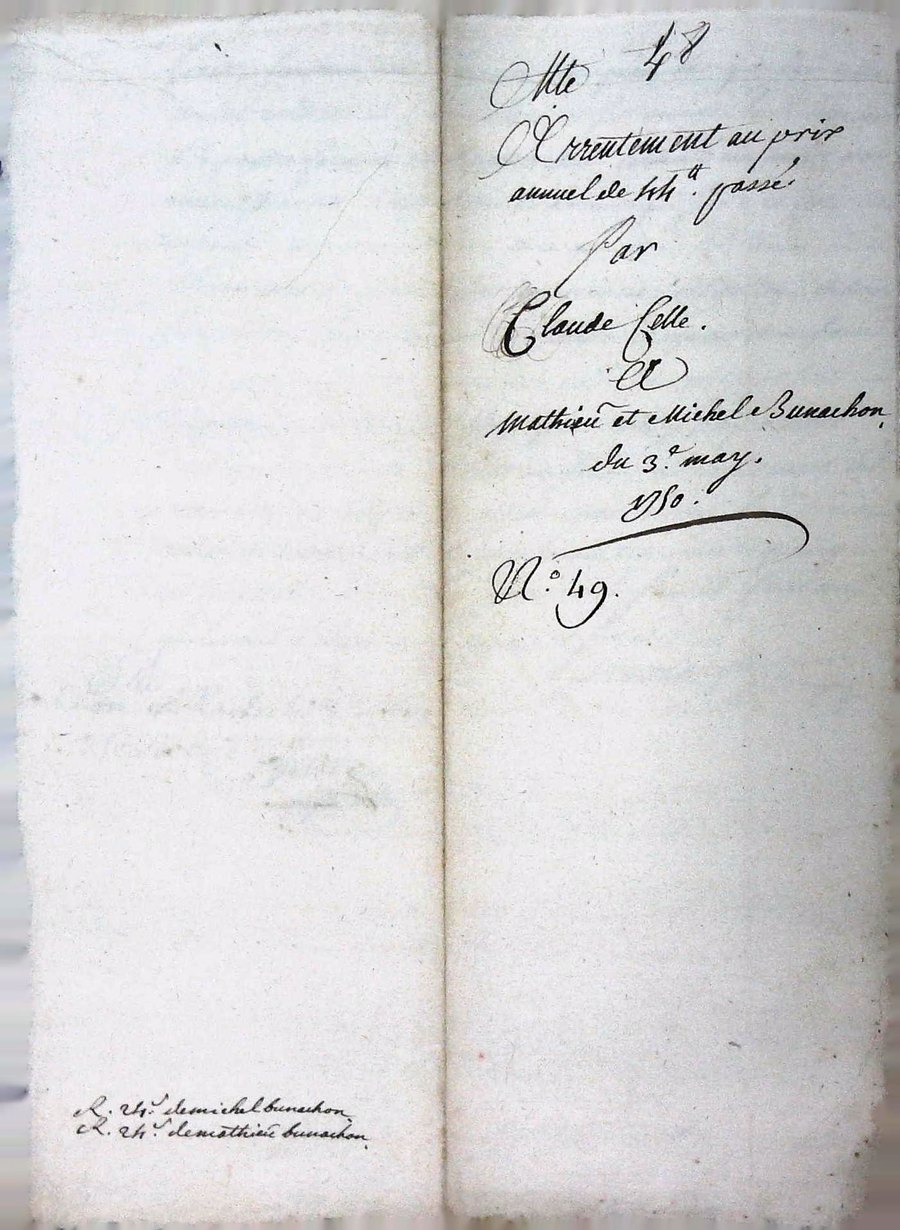 48
Arrentement au prix
annuel de 44ᵗᵗ. passé
Par
Claude Celle.
A
Mathieu et Michel Bunachon,
du 3ᵉ may.
1750.
N.º 49.
R. 24.ˢ de michel bunachon
R. 24.ˢ de mathieu bunachon